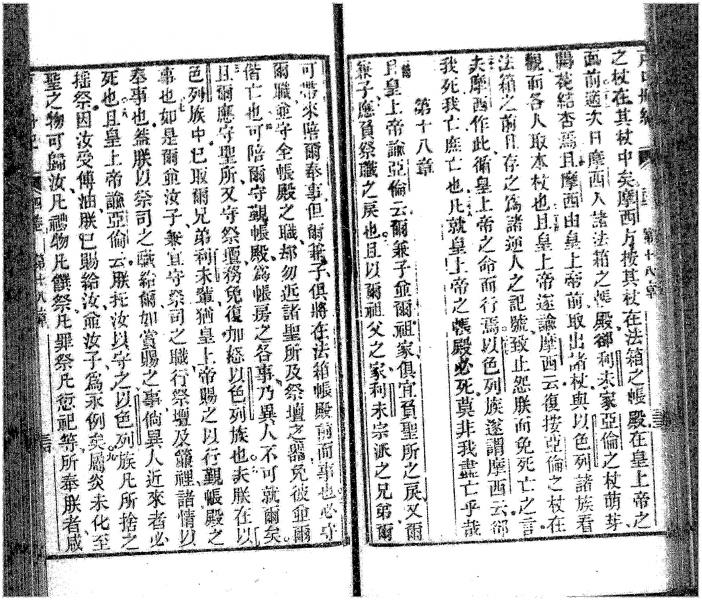 第十八章
之杖在其杖中矣摩西乃按其杖在法箱之帳殿在皇上帝之
面前適次日摩西入諸法箱之帳殿卻利未家亞倫之杖萌芽
開花結杏焉且摩西由皇上帝前取出諸杖與以色列諸族看
觀而各人取本杖也且皇上帝遂諭摩西云復按亞倫之杖在
法箱之前且存之為諸逆人之記號致止怨朕而免死亡之言
夫摩西作此循皇上帝之命而行焉以色列族遂謂摩西云卻
我死我亡庶亡也凡就皇上帝之帳殿必死莫非我盡亡乎哉
第十八章
且皇上帝諭亞倫云爾兼子並爾祖家俱宜負聖所之戾又爾
兼子應負祭職之戾也且以爾祖父之家利未宗派之兄弟爾
可帶來陪爾奉事但爾兼子俱將在法箱帳殿前而事也必守
爾職並守全帳殿之職却勿近諸聖所及祭壇之器免彼並爾
偕亡也可陪爾守覲帳殿為帳房之各事乃異人不可就爾矣
且爾應守聖所又守祭壇務免復加怒以色列族也夫朕在以
色列族中已取爾兄弟利未輩猶皇上帝賜之以行覲帳殿之
事也如是爾並汝子兼宜守祭司之職行祭壇及簾裡諸情以
奉事也蓋朕以祭司之職給爾如賞賜之事倘異人近來者必
死也且皇上帝諭亞倫云朕托汝以守之以色列族凡所捨之
搖祭因汝受傅油朕已賜給汝並汝子為永例矣屬炎未化至
聖之物可歸汝凡禮物凡饌祭凡罪祭凡愆祀等所奉朕者咸
第十八章